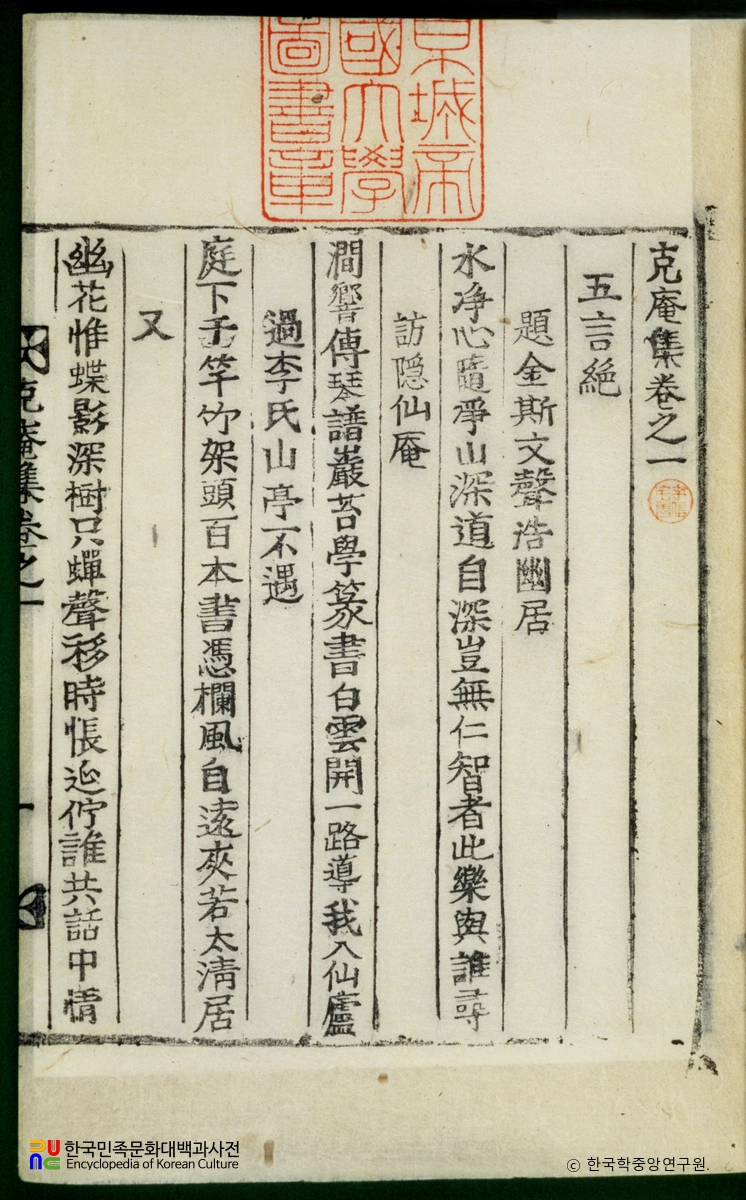 京城帝
國大學
圖書章
克庵集卷之一
五言絶
題金斯文聲浩幽居
水净心隨净山深道自深豈無仁智者此樂與誰尋
訪隠仙庵
澗響傳琴譜巖苔學篆書白雲開一路導我入仙廬
過李氏山亭不遇
庭下千竿竹架頭百本書憑欄風自遠爽若太淸居
又
幽花惟蝶影深樹只蟬聲移時悵延佇誰共話中情
克庵集卷之一
一
한국민족문화대백과사전
Encyclopedia of Korean Culture
© 한국학중앙연구원.